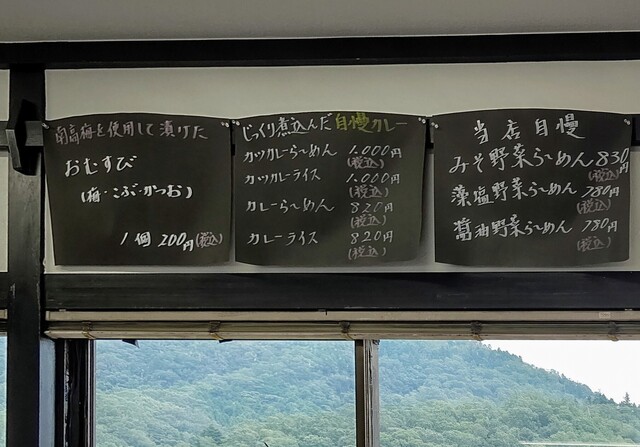 南高梅を使用して漬けた
おむすび
(梅・こぶ・かつお)
1個 200円(税込)
じっくり煮込んだ自慢カレー
カツカレーらーめん 1.000円
(税込)
カツカレーライス 1.000円
(税込)
カレーらーめん 820円
(税込)
カレーライス 820円
(税込)
当店自慢
みそ野菜らーめん 830円
(税込)
藻塩野菜らーめん 780円
(税込)
醤油野菜らーめん 780円
(税込)